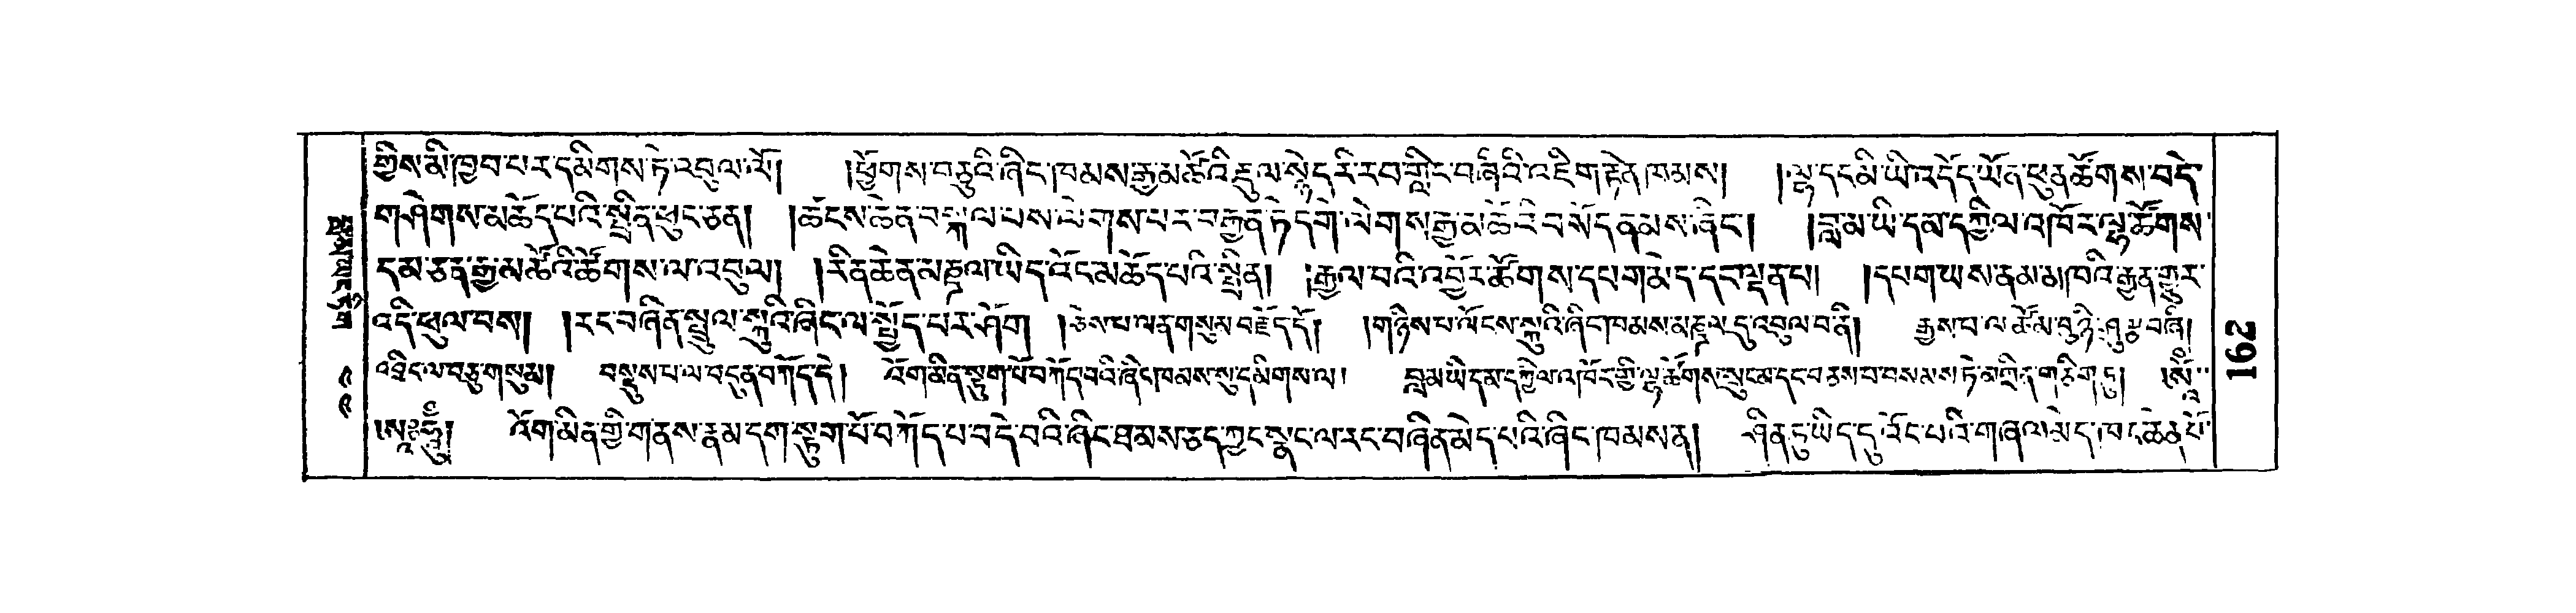 གྱིས་ནི་ཁྱབ་པར་དམིགས་ཏེ་འབུལ་ལོ། །ཕྱོགས་བཅུའི་ཞིང་ཁམས་རྒྱ་མཚོའི་རྡུལ་སྙེད་རི་རབ་གླིང་བཞིའི་འཇིག་རྟེན་ཁམས། །ལྷ་དང་མི་ཡི་འདོད་ཡོན་ཕུན་ཚོགས་བདེ་
གཤེགས་མཆོད་པའི་སྤྲིན་ཕུང་ཅན། །ཚངས་ཆེན་བསྐལ་པས་ལེགས་པར་བརྒྱན་ཏེ་དགེ་ལེགས་རྒྱ་མཚོའི་བསོད་ནམས་ཞིང་། །བླ་མ་ཡི་དམ་དཀྱིལ་འཁོར་ལྷ་ཚོགས་
དམ་ཅན་རྒྱ་མཚོའི་ཚོགས་ལ་འབུལ། །རིན་ཆེན་མཎྜལ་ཡིད་འོང་མཆོད་པའི་སྤྲིན། །རྒྱལ་བའི་འབྱོར་ཚོགས་དཔག་མེད་དང་ལྡན་པ། །དཔག་ཡས་ནམ་མཁའི་རྒྱན་གྱུར་
འདི་ཕུལ་བས། །རང་བཞིན་སྤྲུལ་སྐུའི་ཞིང་ལ་སྤྱོད་པར་ཤོག །ཅེས་པ་ལན་གསུམ་བརྗོད་དོ། །གཉིས་པ་ལོངས་སྐུའི་ཞིང་ཁམས་མཎྜལ་དུ་འབུལ་བ་ནི། རྒྱས་པ་ལ་ཚོམ་བུ་ཉི་ཤུ་རྩ་བཞི།
འབྲིང་ལ་བཅུ་གསུམ། བསྡུས་པ་ལ་བདུན་བཀོད་དེ། འོག་མིན་སྟུག་པོ་བཀོད་པའི་ཞིང་ཁམས་སུ་དམིགས་ལ། བླ་མ་ཡི་དམ་དཀྱིལ་འཁོར་གྱི་ལྷ་ཚོགས་སྲུང་མ་དང་བཅས་པ་བསམས་ཏེ་མགྲིན་གཅིག་ཏུ། །ཨོཾ་
།ཨཱཿཧཱུྃ། འོག་མིན་གྱི་གནས་རྣམ་དག་སྟུག་པོ་བཀོད་པ་བདེ་བའི་ཞིང་ཐམས་ཅད་ཀྱང་སྣང་ལ་རང་བཞིན་མེད་པའི་ཞིང་ཁམས་ན། ཤིན་ཏུ་ཡིད་དུ་འོང་བའི་གཞལ་མེད་ཁང་ཆེན་པོ་
261